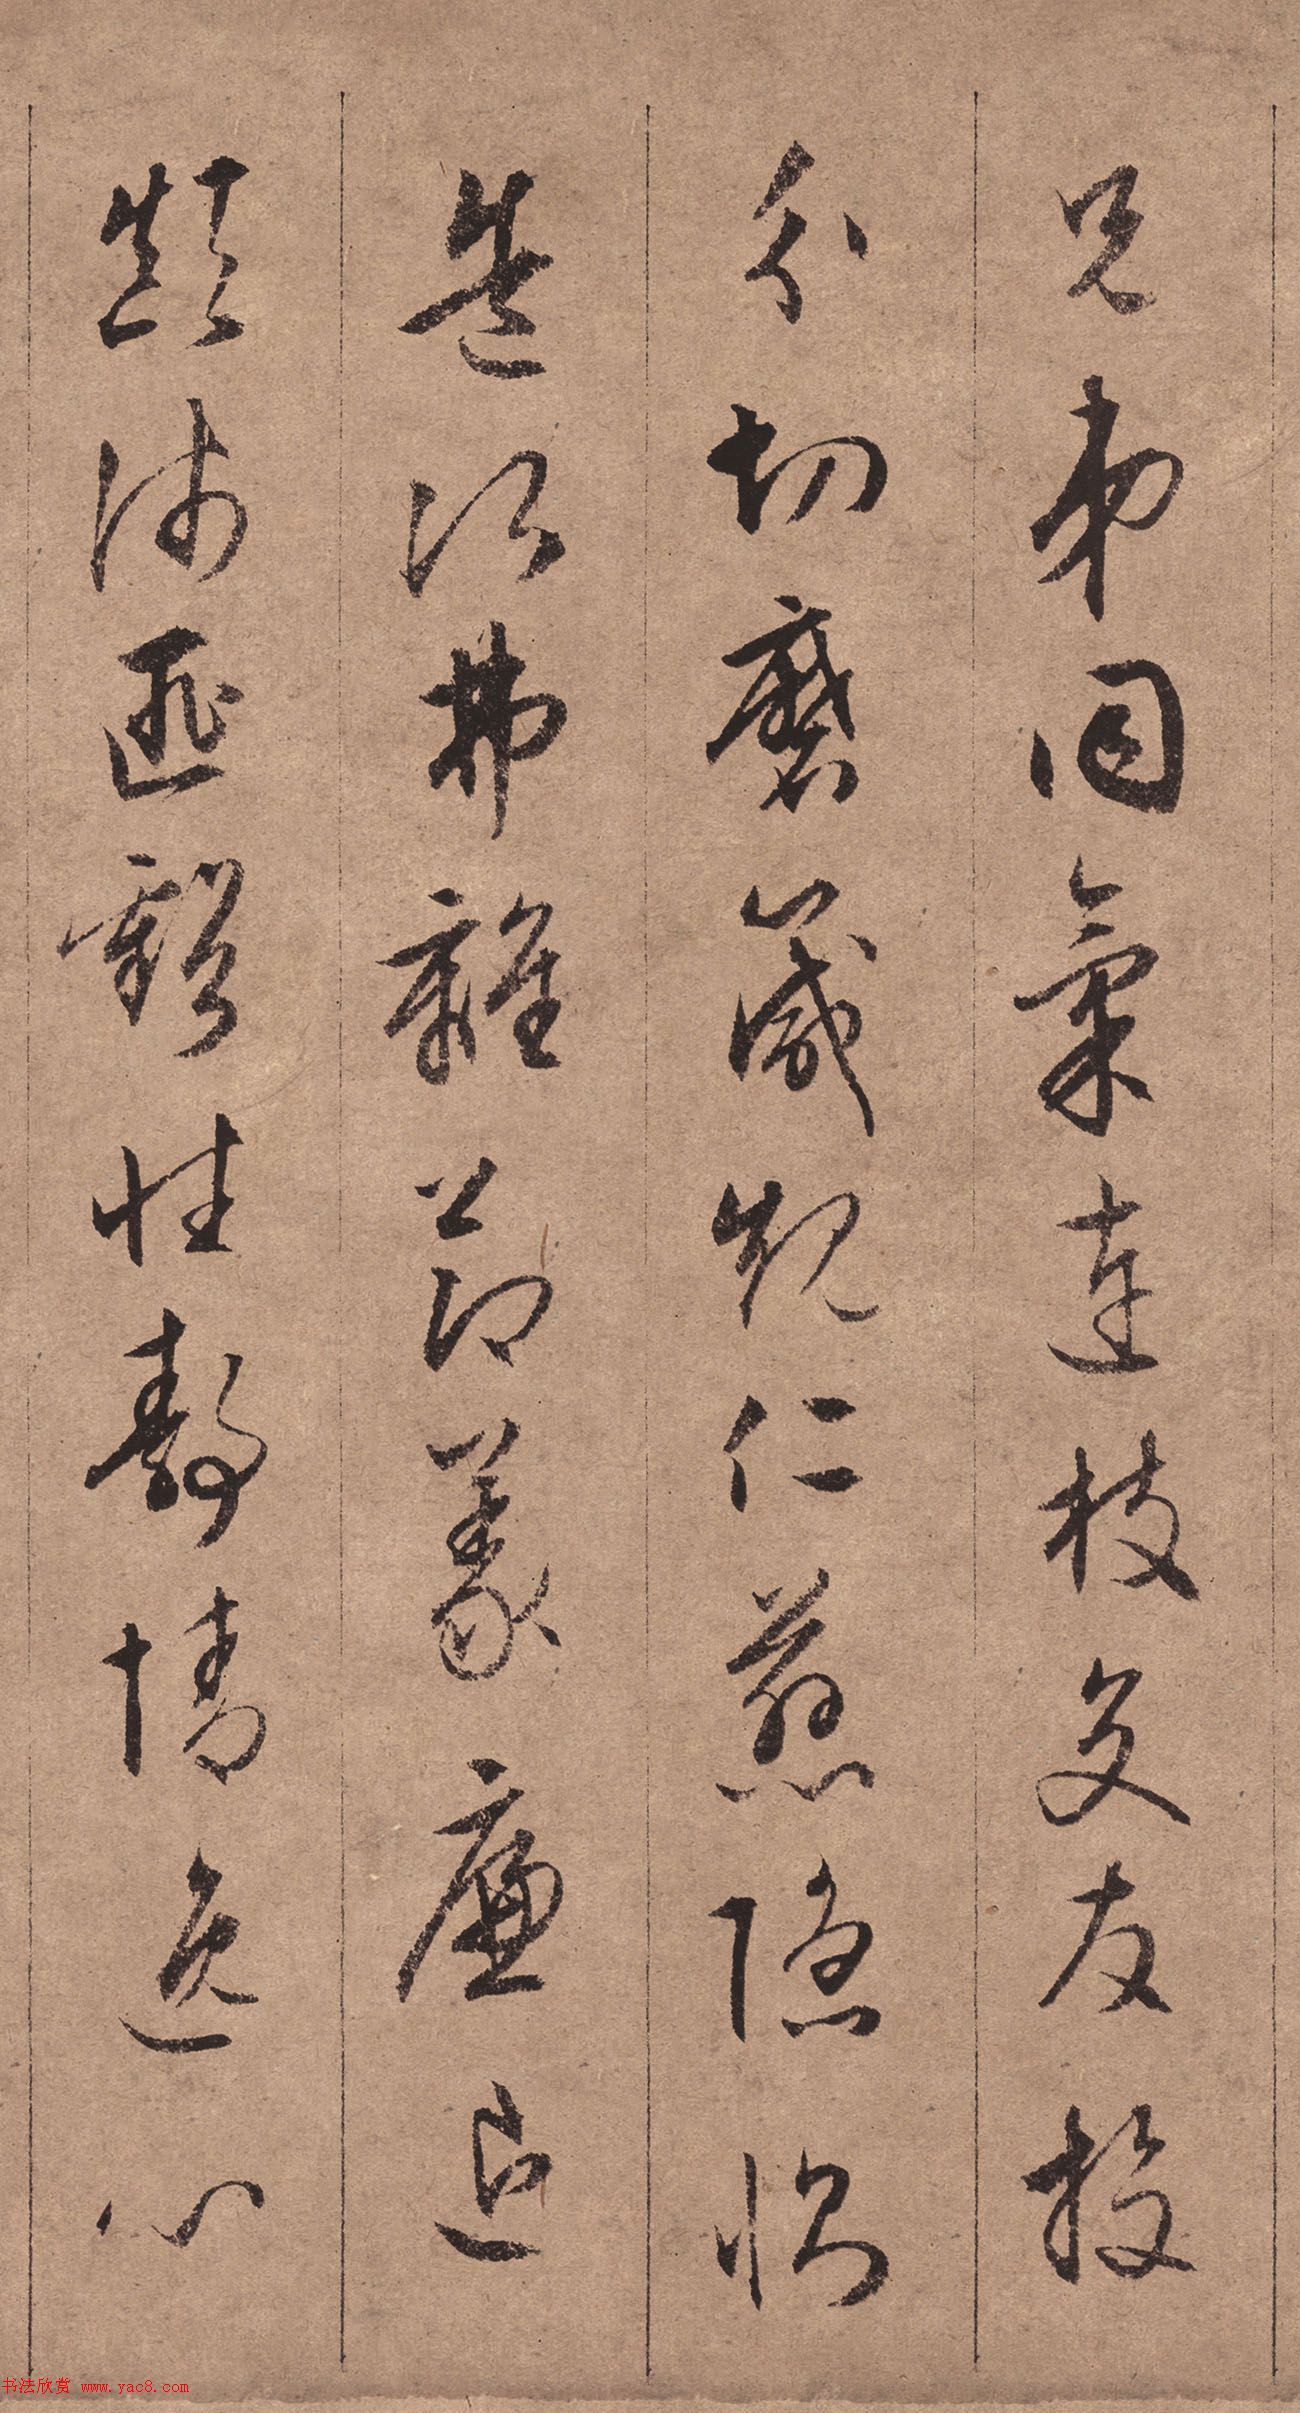 兄弟同氣連枝交友投
分切磨箴規仁慈隱惻
造次弗離節義廉退
顛沛匪虧性靜情逸心
书法欣赏 www.yac8.com